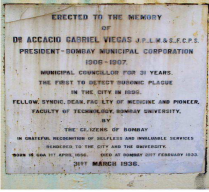 ERECTED TO THE MEMORY
OF
DR ACCACIO GABRIEL VIEGAS J.P., L.M.& S., F.C.P.S.
PRESIDENT-BOMBAY MUNICIPAL CORPORATION
1906-1907.
MUNICIPAL COUNCILLOR FOR 31 YEARS.
THE FIRST TO DETECT BUBONIC PLAGUE
IN THE CITY IN 1896.
FELLOW, SYNDIC, DEAN, FACULTY OF MEDICINE AND PIONEER,
FACULTY OF TECHNOLOGY, BOMBAY UNIVERSITY.
BY
THE CITIZENS OF BOMBAY
IN GRATEFUL RECOGNITION OF SELFLESS AND INVALUABLE SERVICES
RENDERED TO THE CITY AND THE UNIVERSITY.
BORN IN GOA 1ST APRIL, DIED AT BOMBAY 21ST FEBRUARY
31ST MARCH 1936.